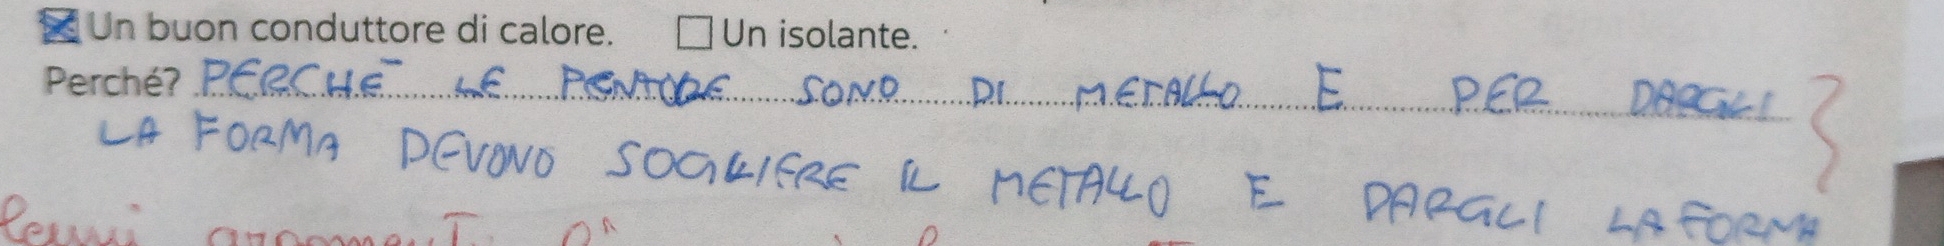 Un buon conduttore di calore. Un isolante.
Perché? PERCHÈ LE PENTOLE SONO DI METALLO E PER DARGLI
LA FORMA DEVONO SOGLIERE IL METALLO E DARGLI LA FORMA